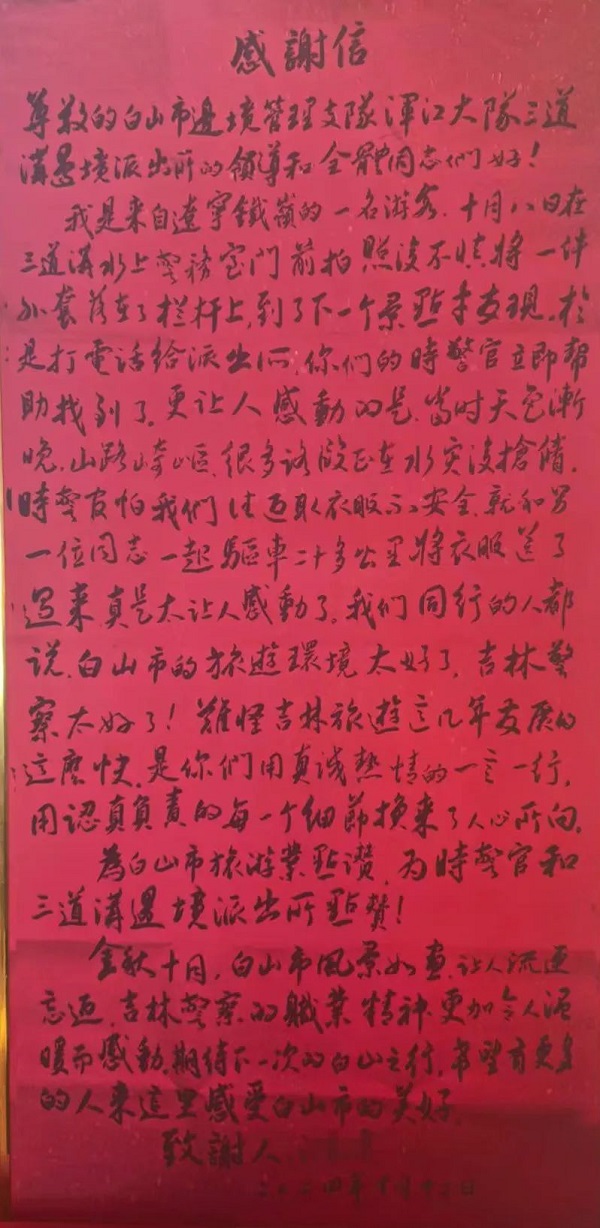 感謝信
尊敬的白山市邊境管理支隊渾江大隊三道
溝邊境派出所的領導和全體同志們好！
我是来自遼寧鐵嶺的一名游客．十月八日在
三道溝水上警務室門前拍照没不慎将一件
外套落在了栏杆上，到了下一个景點才发現。於
是打電话给派出所．你们的時警官立即幫
助找到了。更让人感動的是．當时天色漸
晚．山路崎嶇．很多路段正在水灾没搶脩．
時警官怕我們往返取衣服不安全．就和另
一位同志一起驅車二十多公里將衣服送了
过来．真是太让人感動了。我們同行的人都
说．白山市的旅遊環境太好了．吉林警
察太好了！難怪吉林旅遊这几年发展的
这麽快．是你们用真诚熱情的一言一行．
用認真負責的每一个细節换来了人心所向．
為白山市旅游業點讚．为時警官和
三道溝邊境派出所點赞！
金秋十月．白山市風景如畫．让人流连
忘返．吉林警察的職業精神更加令人温
暖而感動．期待下一次的白山之行．希望有更多
的人来這里感受白山市的美好．
致謝人
二〇二四年十月十二日